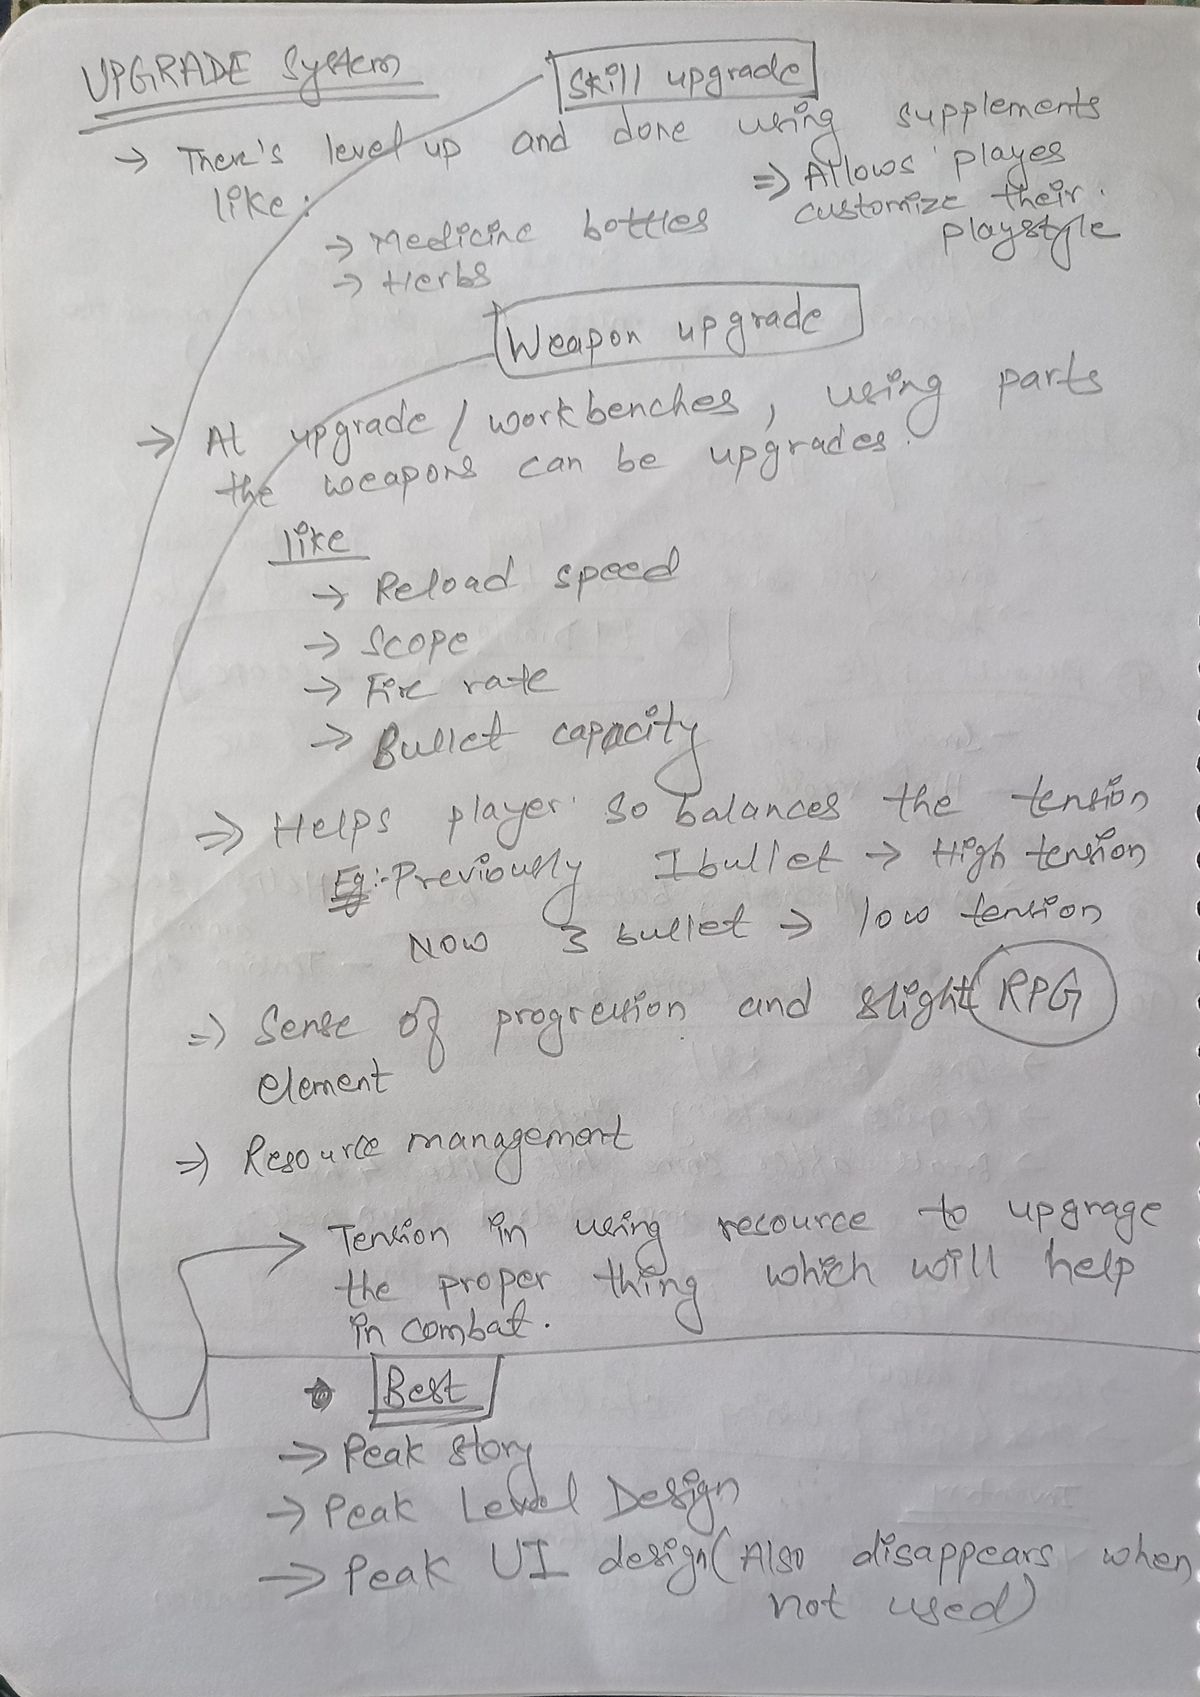 UPGRADE System
Skill upgrade
→ There's level up and done using supplements
like:
⇒ Allows playes
customize their
playstyle
→ Medicine bottles
→ Herbs
Weapon upgrade
→ At upgrade / workbenches, using parts
the weapons can be upgrades.
like
→ Reload speed
→ Scope
→ Fire rate
→ Bullet capacity
⇒ Helps player so balances the tension
Eg:- Previously 1 bullet → High tension
Now 3 bullet → low tension
⇒ Sense of progression and slight RPG
element
⇒ Resource management
→ Tension in using recource to upgrage
the proper thing which will help
in combat.
Best
→ Peak story
→ Peak Level Design
→ Peak UI design (Also disappears when
not used)